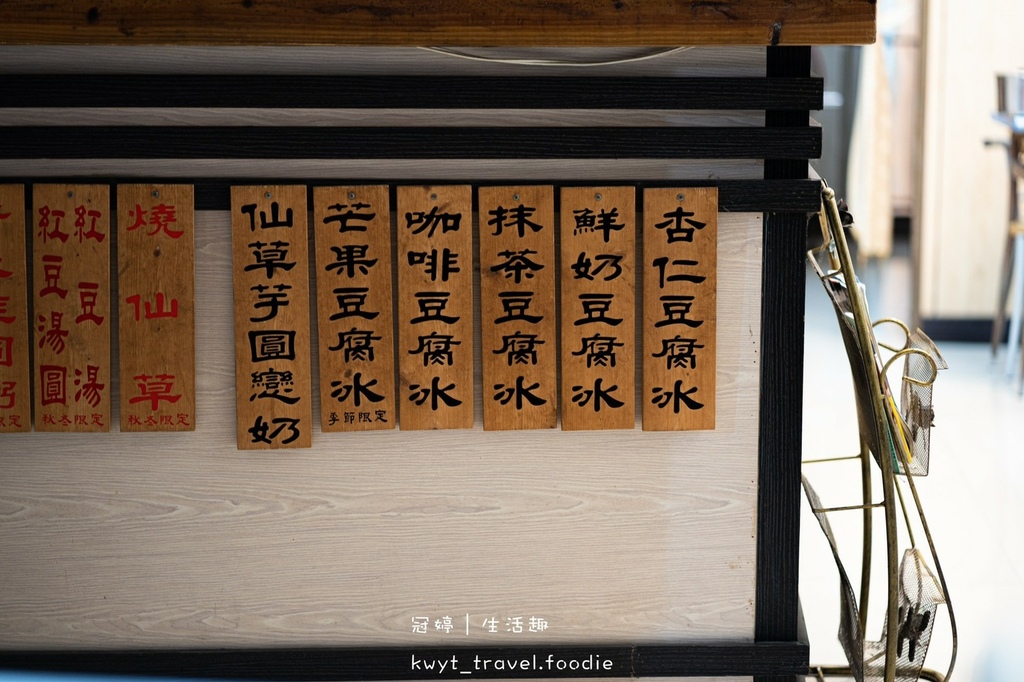 杏仁豆腐冰
鮮奶豆腐冰
抹茶豆腐冰
咖啡豆腐冰
芒果豆腐冰
季節限定
仙草芋圓戀奶
燒仙草
秋冬限定
紅豆湯
紅豆湯圓
秋冬限定
冠婷｜生活趣
kwyt_travel.foodie